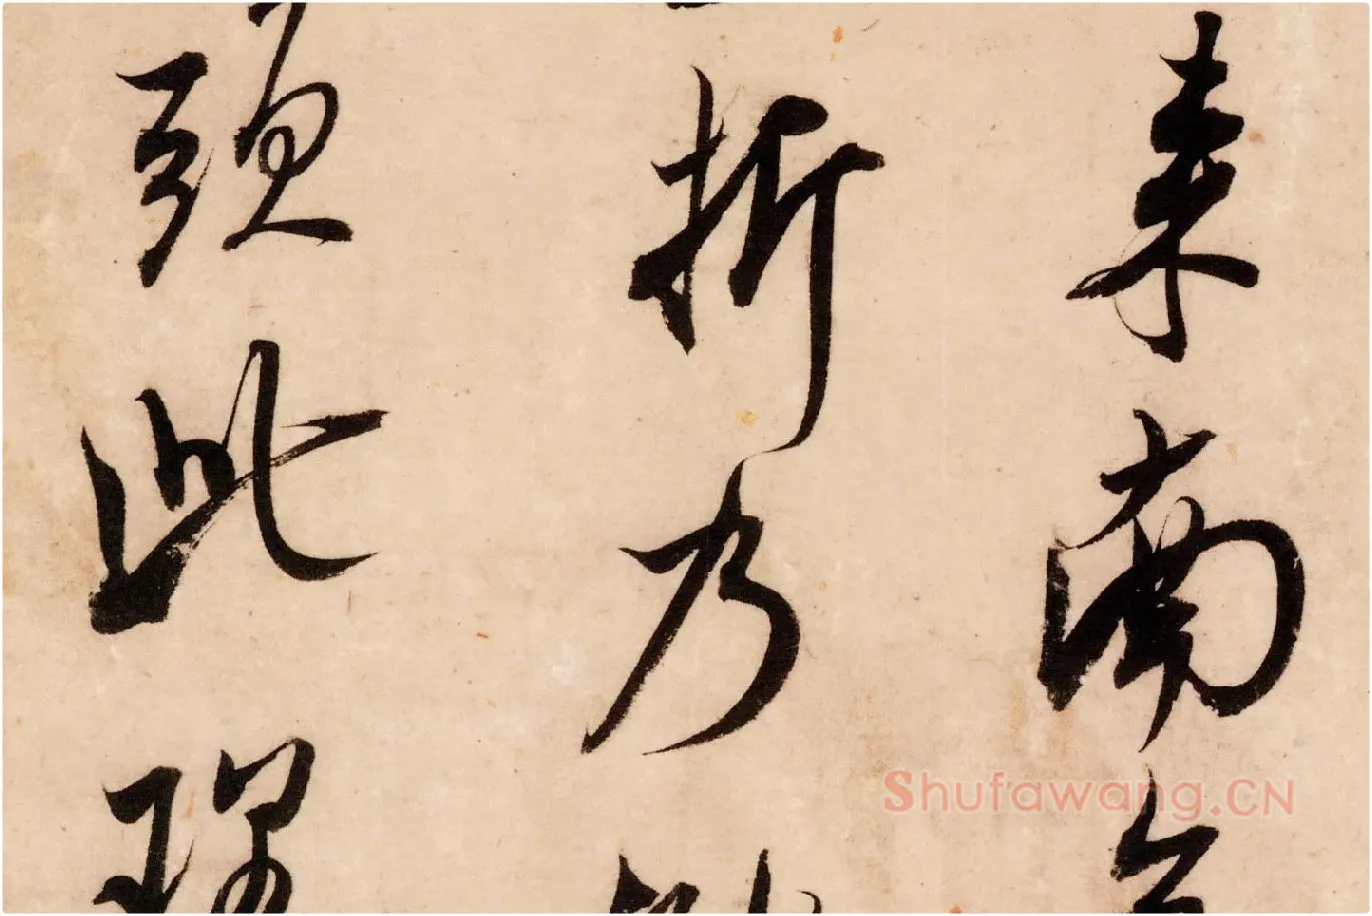 来南
折乃
頭此理
Shufawang.CN